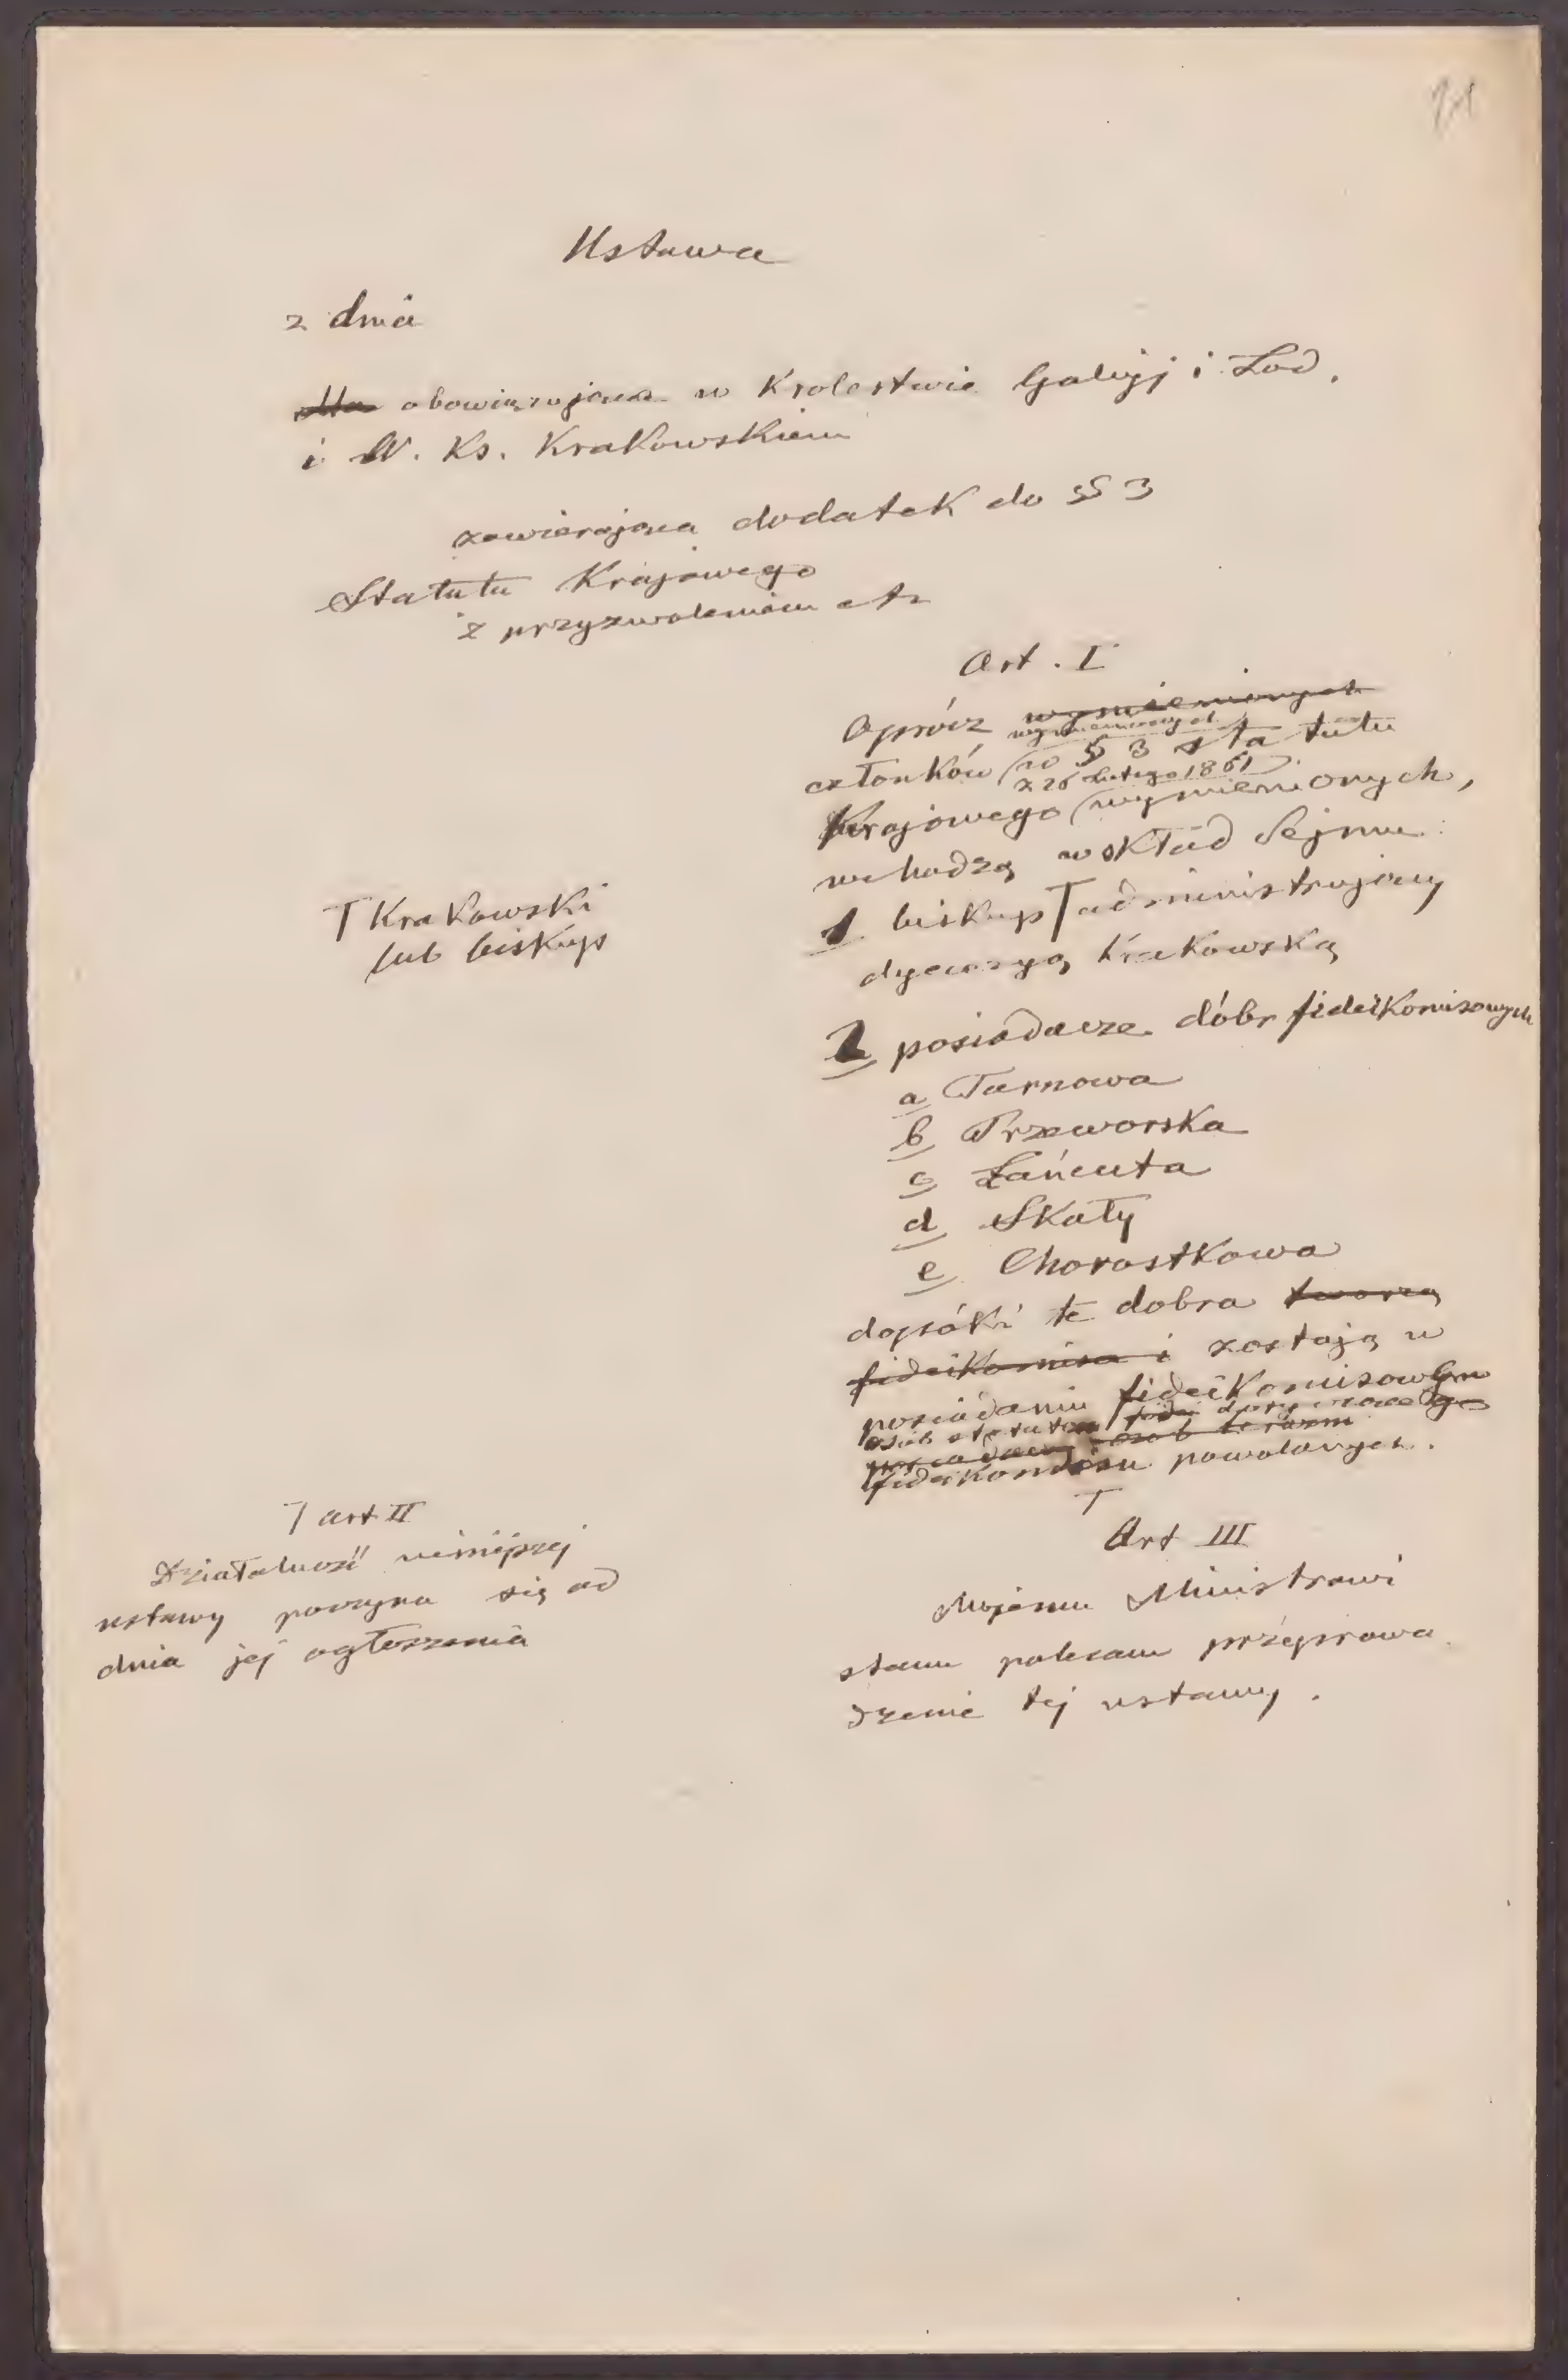 Ustawa
z dnia
obowiązująca w Krolestwie Galicyj i Lod.
i W. Ks. Krakowskiem
zawierająca dodatek do § 3
Statutu Krajowego
z przyzwoleniem etc
Art. I
Oprócz wymienionych
wymienionych
członków (w § 3 statutu
z 26 Lutego 1861)
Krajowego (wymienionych,
wchodzą w skład Sejmu
1 biskup T administrujący
T Krakowski
lub biskup
dyecezyą Krakowską
2 posiadacze dóbr fideikomisowych
a Tarnowa
b Przeworska
c Łańcuta
d Skały
e Chorostkowa
dopóki te dobra tworzą
fideikomisa i zostają w
posiadaniu fideikomisowym
osób statutem
posiadaczy osob
fideikomisu powołanych.
T
T art II
Działalność niniejszej
ustawy poczyna się od
dnia jej ogłoszenia
Art III
Mojemu Ministrowi
stanu polecam przeprowa
dzenie tej ustawy.